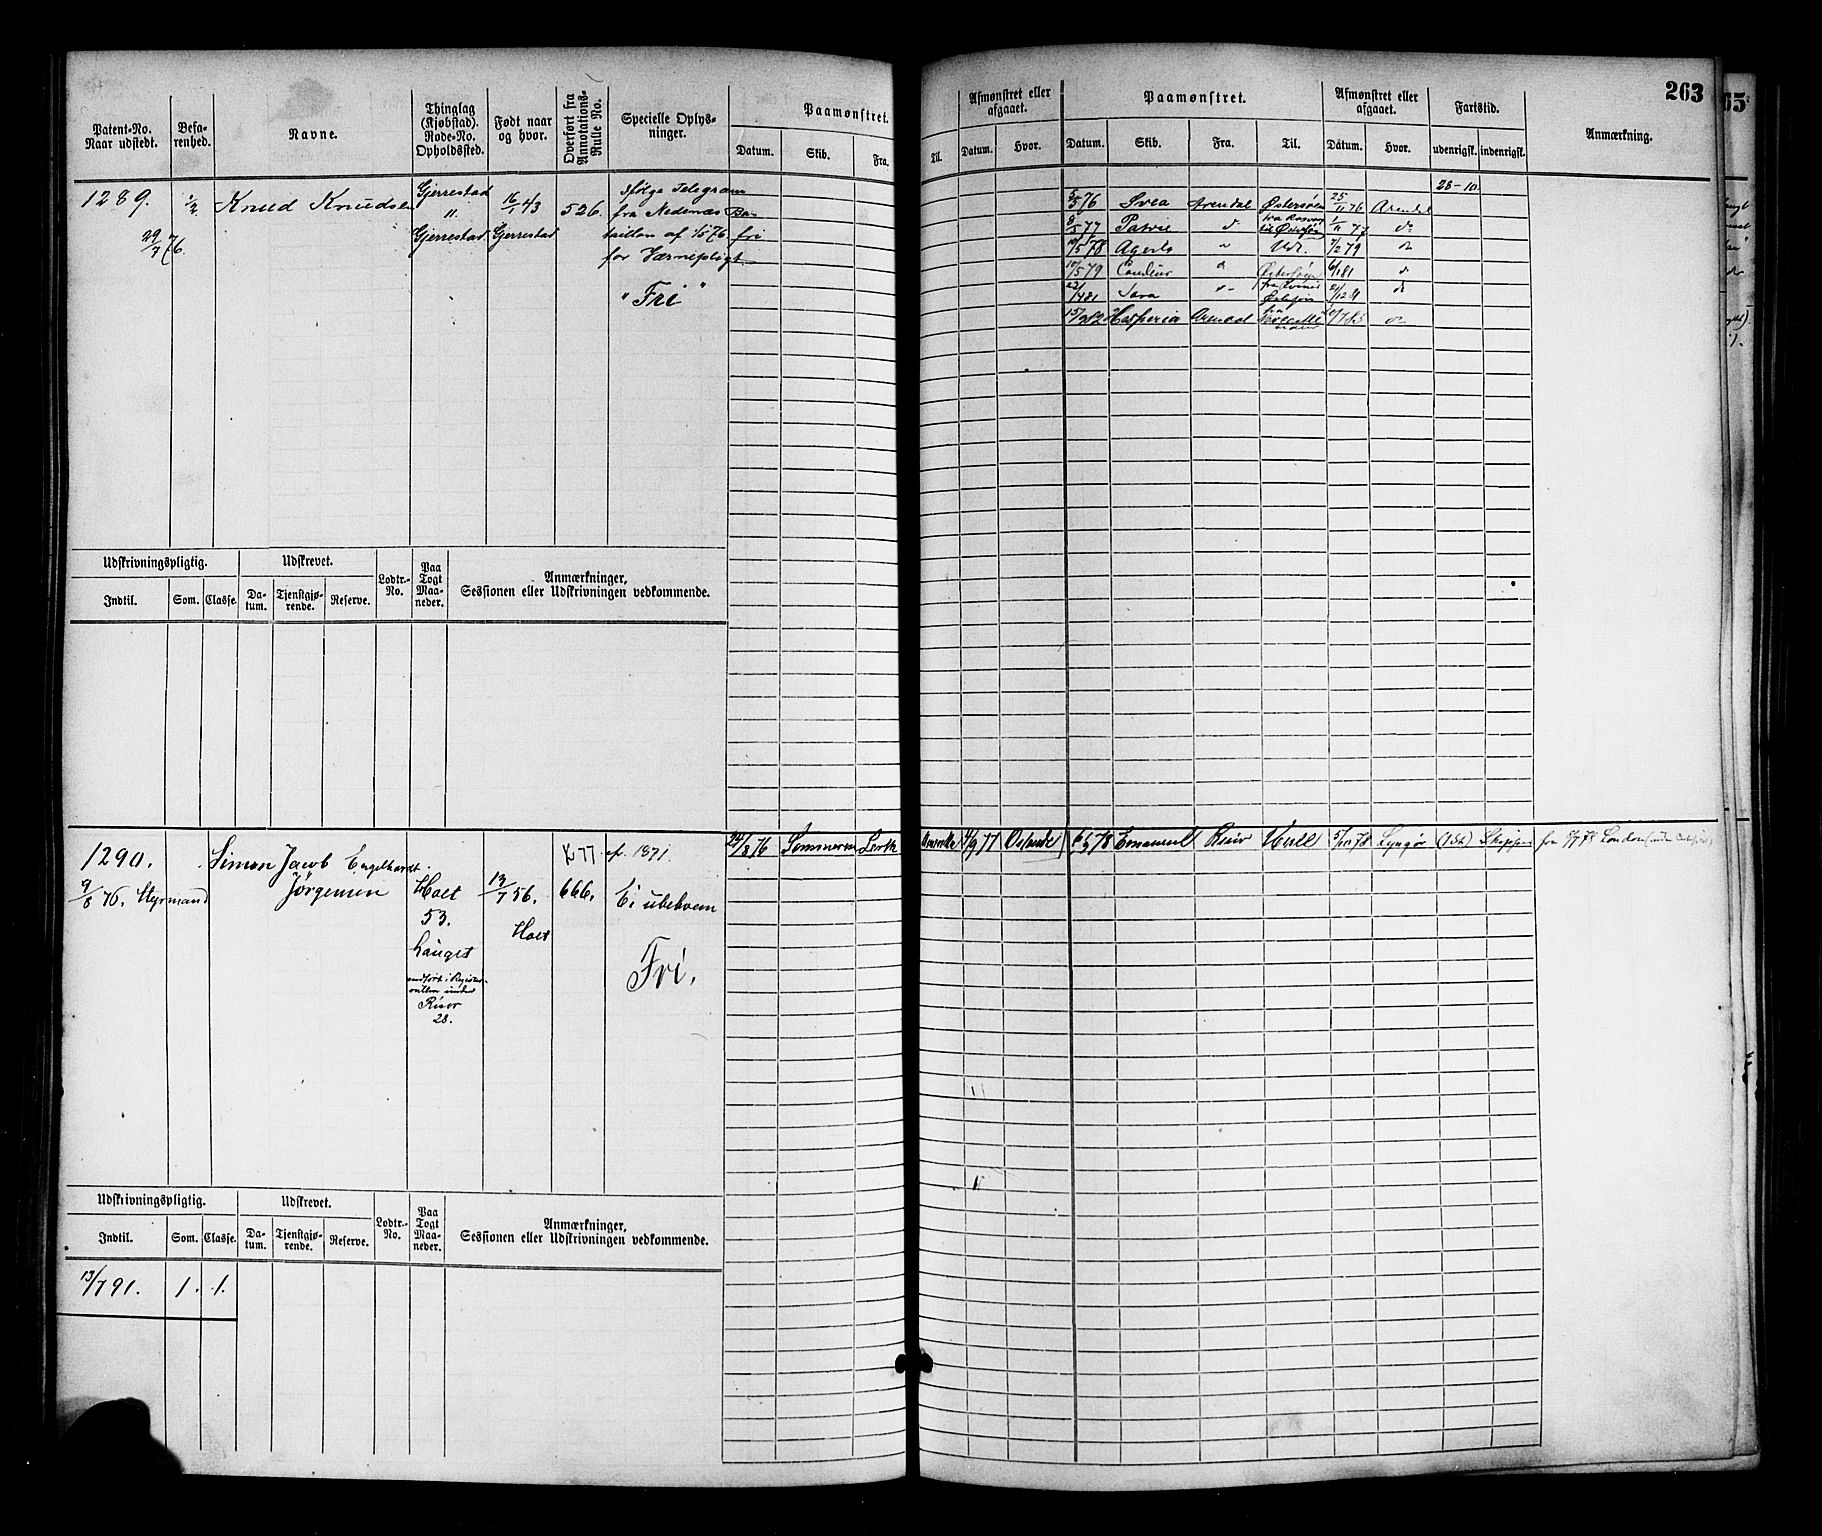 263
Patent-No.
Naar udstedt.
Befa-
renhed.
Navne.
Thinglag
(Kjøbstad).
Rode-No.
Opholdssted.
Født naar
og hvor.
Overført fra
Annotations-
Rulle No.
Specielle Oplys-
ninger.
Paamønstret.
Datum.
Skib.
Fra.
Til.
Afmønstret eller
afgaaet.
Datum.
Hvor.
Paamønstret.
Datum.
Skib.
Fra.
Til.
Afmønstret eller
afgaaet.
Datum.
Hvor.
Fartstid.
udenrigsk.
indenrigsk.
Anmærkning.
1289.
29/7 76.
1/2
Knud Knudsen
Gjerrestad
11.
Gjerrestad
16/1 43
Gjerrestad
526.
Ifølge Telegram
fra Nedenæs Ba-
taillon af 1/5 76 fri
for Værnepligt
"Fri"
28-10
5/5 76 Svea Arendal Østersøen 25/11 76 Arendal
8/5 77 d til Østersøen 1/11 77 do
10/5 78 Agerts " Udl. 7/2 79 do
10/5 79 d Østersøen 6/1 81 d
23/4 81 Sara d Østersøen 21/12 81 do
15/2 82 Hesperia Arendal do
Udskrivningspligtig.
Indtil.
Som.
Classe.
Udskrevet.
Da-
tum.
Tjenstgjø-
rende.
Reserve.
Lodtr.-
No.
Paa
Togt
Maa-
neder.
Anmærkninger,
Sessionen eller Udskrivningen vedkommende.
1290.
9/8 76. Styrmand
Simon Jacob Engelhardt
Jørgensen
Holt
53.
Lauget
Risør
28.
13/7 56.
Holt
666.
77 af. 1871.
Ei ubekvem
Fri.
24/8 76 Leith Amerika 4/9 77 Ostende 6/5 78 Emanuel Risør Hull 5/10 78 Lyngør Skipper fra 9/7 78 London
Udskrivningspligtig.
Indtil.
Som.
Classe.
Udskrevet.
Da-
tum.
Tjenstgjø-
rende.
Reserve.
Lodtr.-
No.
Paa
Togt
Maa-
neder.
Anmærkninger,
Sessionen eller Udskrivningen vedkommende.
13/7 91. 1. 1.